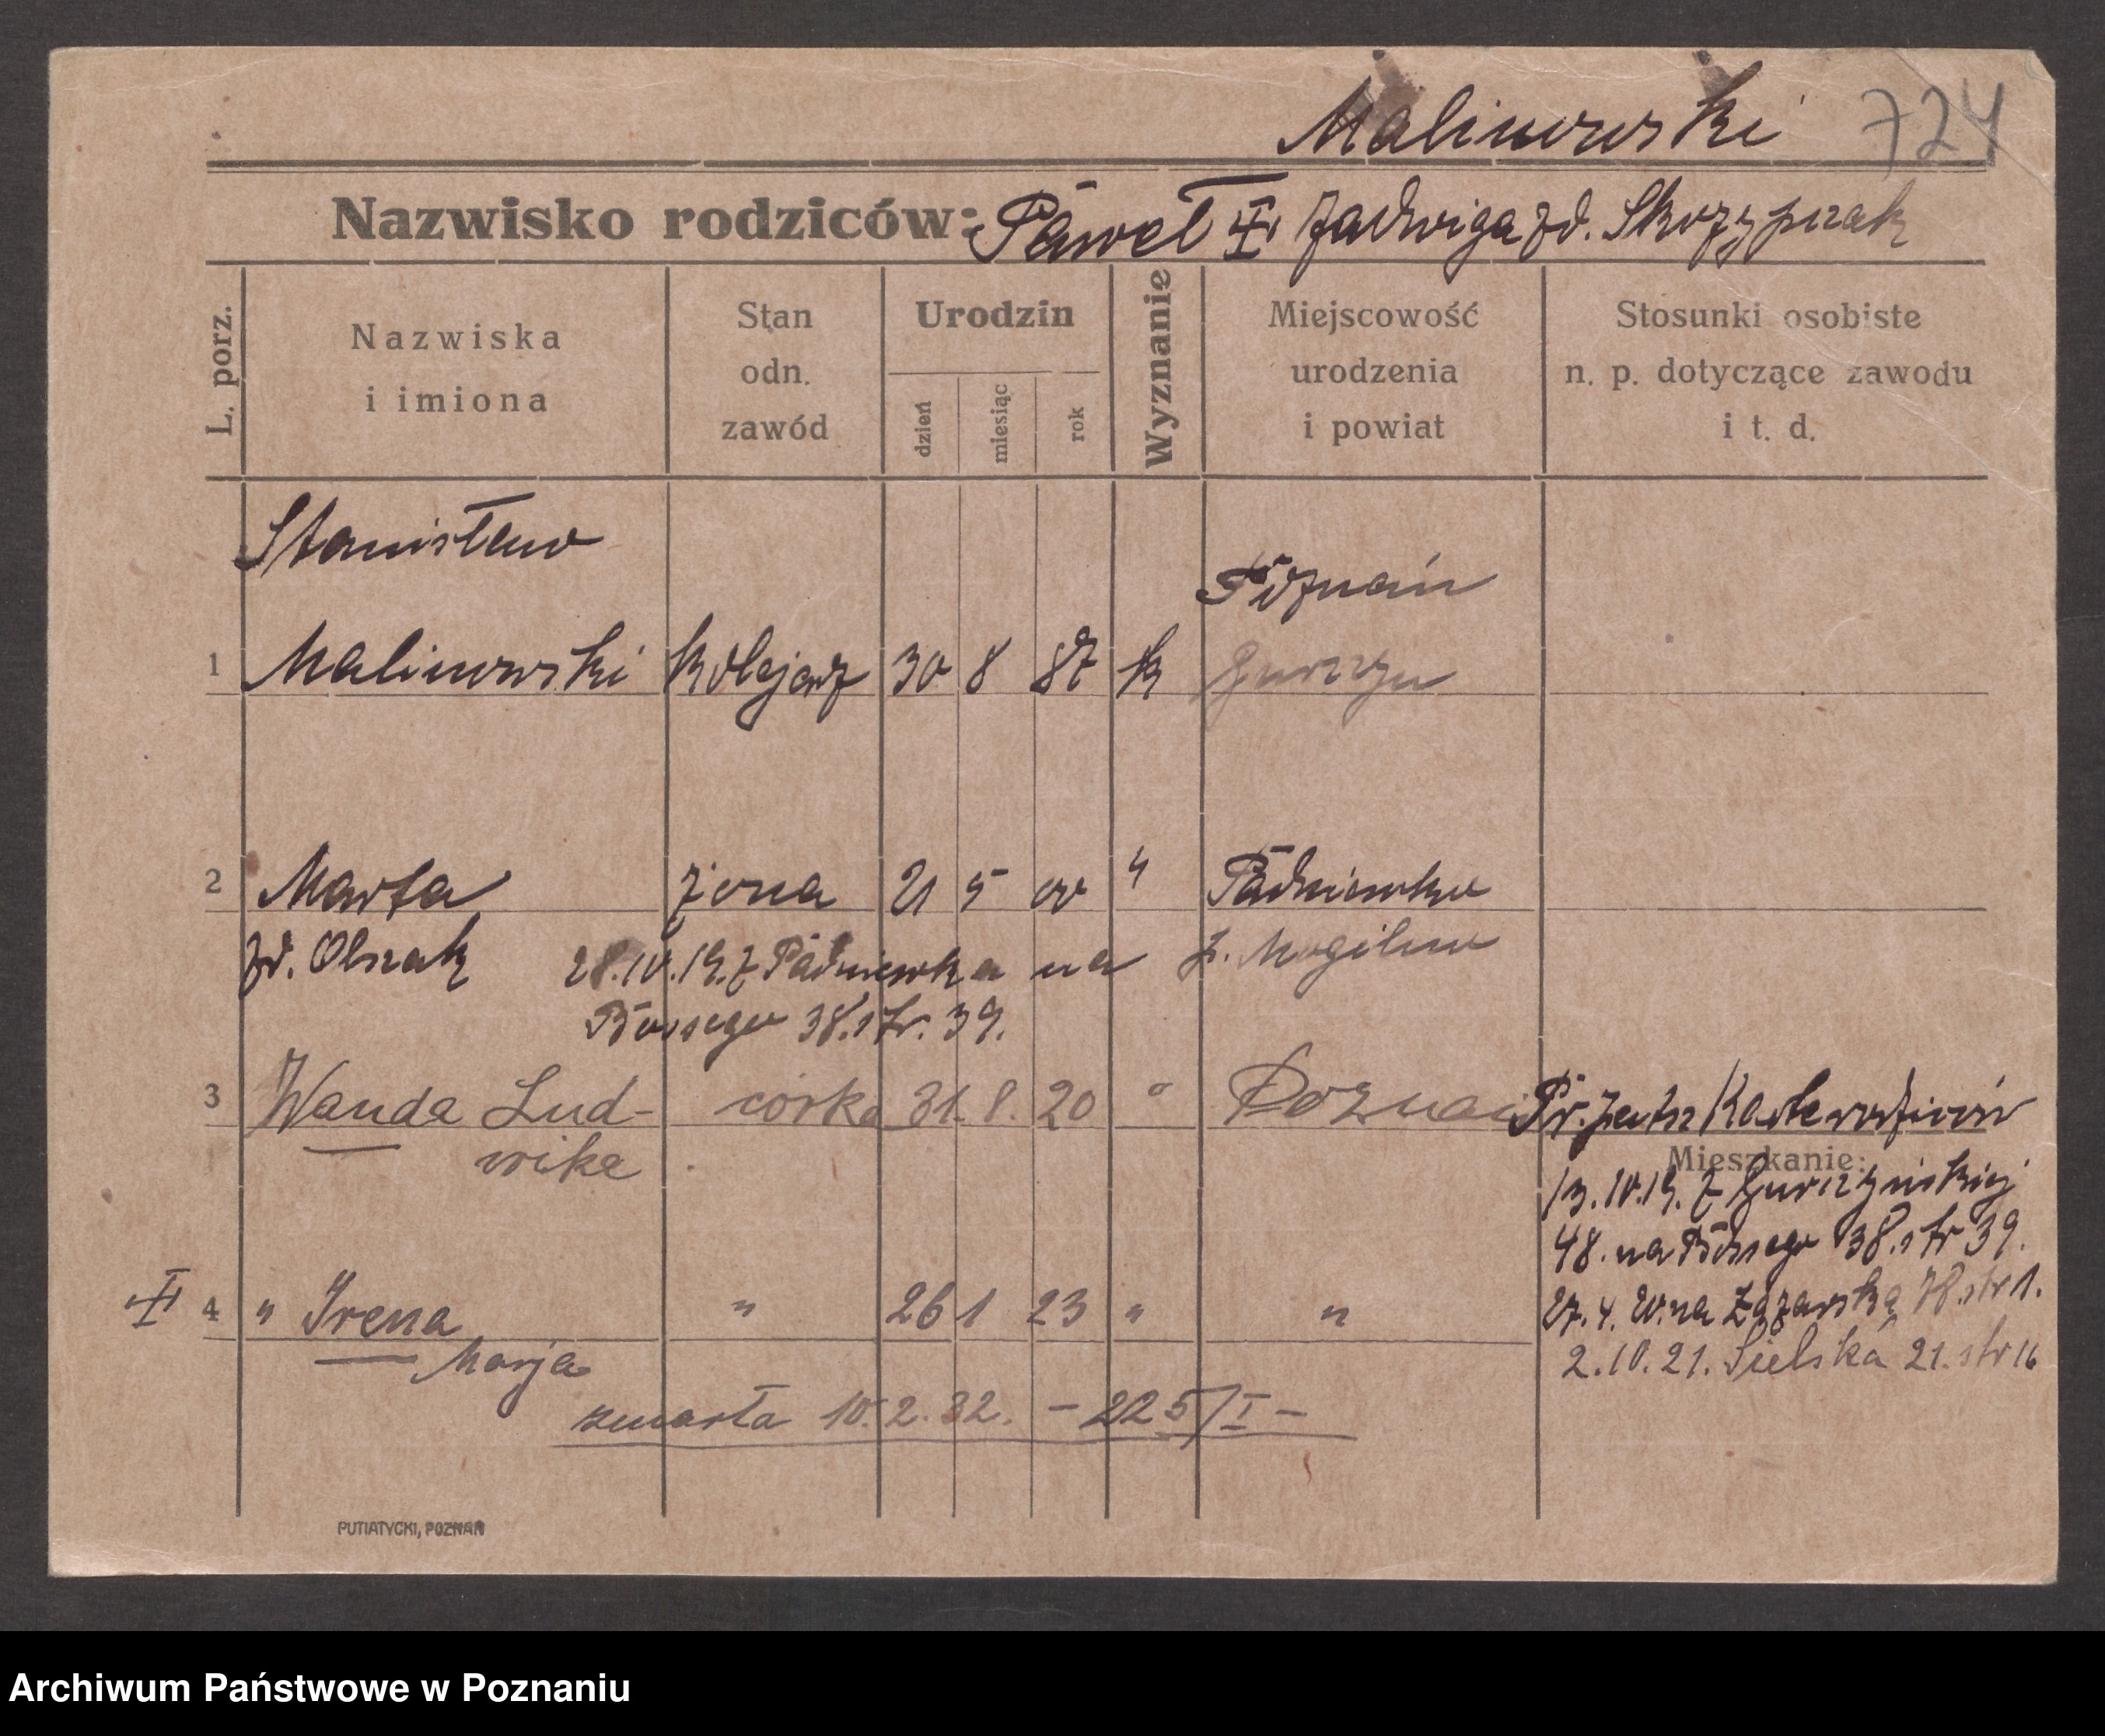 Malinowski 724
Nazwisko rodziców: Paweł Jadwiga zd. Skrzypczak
L. porz.
Nazwiska
i imiona
Stan
odn.
zawód
Urodzin
dzień
miesiąc
rok
Wyznanie
Miejscowość
urodzenia
i powiat
Stosunki osobiste
n. p. dotyczące zawodu
i t. d.
Stanisław
Poznań
1 Malinowski kolejarz 30 8 87 k Gurczyn
2 Marta żona 21 5 00 " Padniewko
zd. Olszak 28.10.19. z Padniewka na p. Mogilno
Bossego 38. str. 39.
3 Wanda Lud- córka 31. 8. 20 " Poznań
wika
Mieszkanie:
13.10.19. z Gurczyńskiej
48. na Bossego 38. str 39.
4 " Irena " 26 1 23 " "
27. 4. 20. na Łazarską str 1.
Marja
2.10.21. Sielska 21. str 16
zmarła 10. 2. 32. – 225/I –
PUTIATYCKI, POZNAŃ
Archiwum Państwowe w Poznaniu